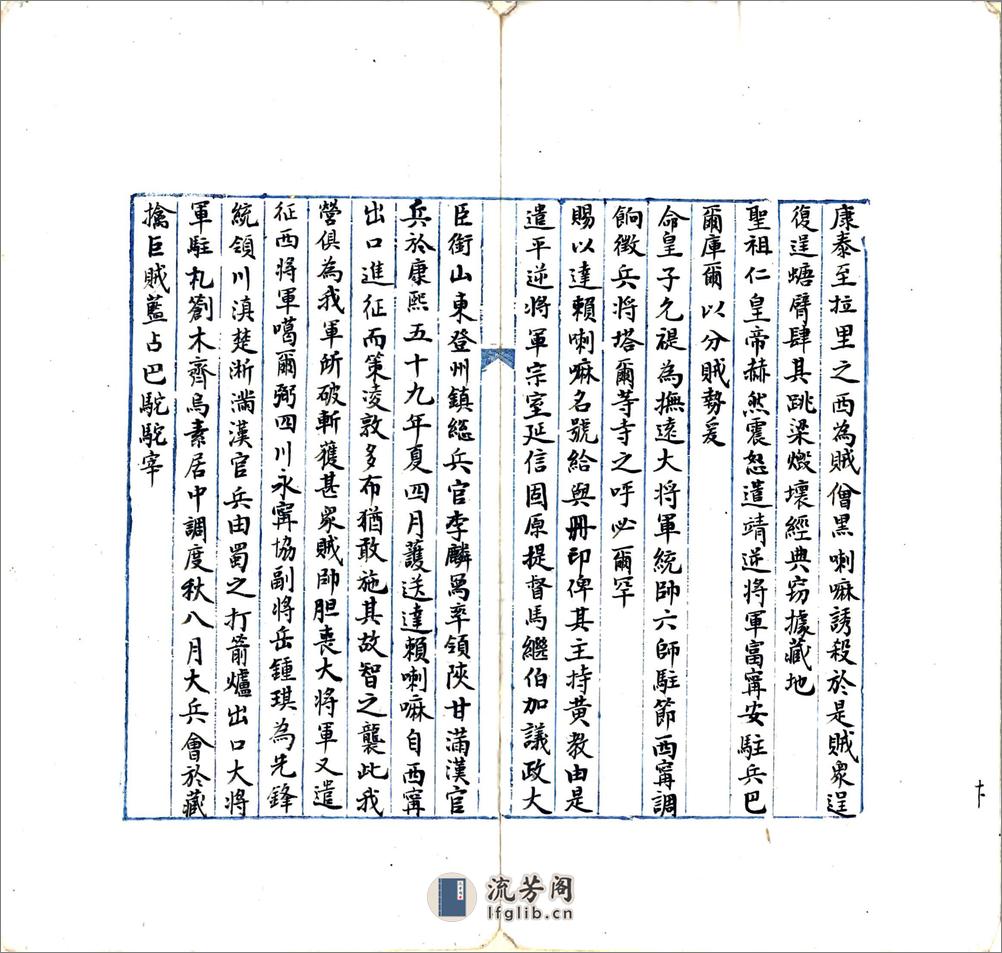 康泰至拉里之西為賊僧黑喇嘛誘殺於是賊衆逞
復逞螗臂肆其跳梁燬壞經典窃據藏地
聖祖仁皇帝赫然震怒遣靖逆將軍富寗安駐兵巴
爾庫爾以分賊勢爰
命皇子允禵為撫遠大將軍統帥六師駐節西寗調
餉徵兵將塔爾等寺之呼必爾罕
賜以達賴喇嘛名號給與冊印俾其主持黃教由是
遣平逆將軍宗室延信固原提督馬繼伯加議政大
臣銜山東登州鎮緫兵官李麟寯率領陝甘滿漢官
兵於康熙五十九年夏四月護送達賴喇嘛自西寗
出口進征而策淩敦多布猶敢施其故智之襲此我
營俱為我軍所破斬獲甚衆賊帥胆喪大將軍又遣
征西將軍噶爾弼四川永寗協副將岳鍾琪為先鋒
統領川滇楚浙滿漢官兵由蜀之打箭爐出口大將
軍駐札劄木齊烏素居中調度秋八月大兵會於藏
擒巨賊藍占巴駝駝宰
流芳阁
lfglib.cn